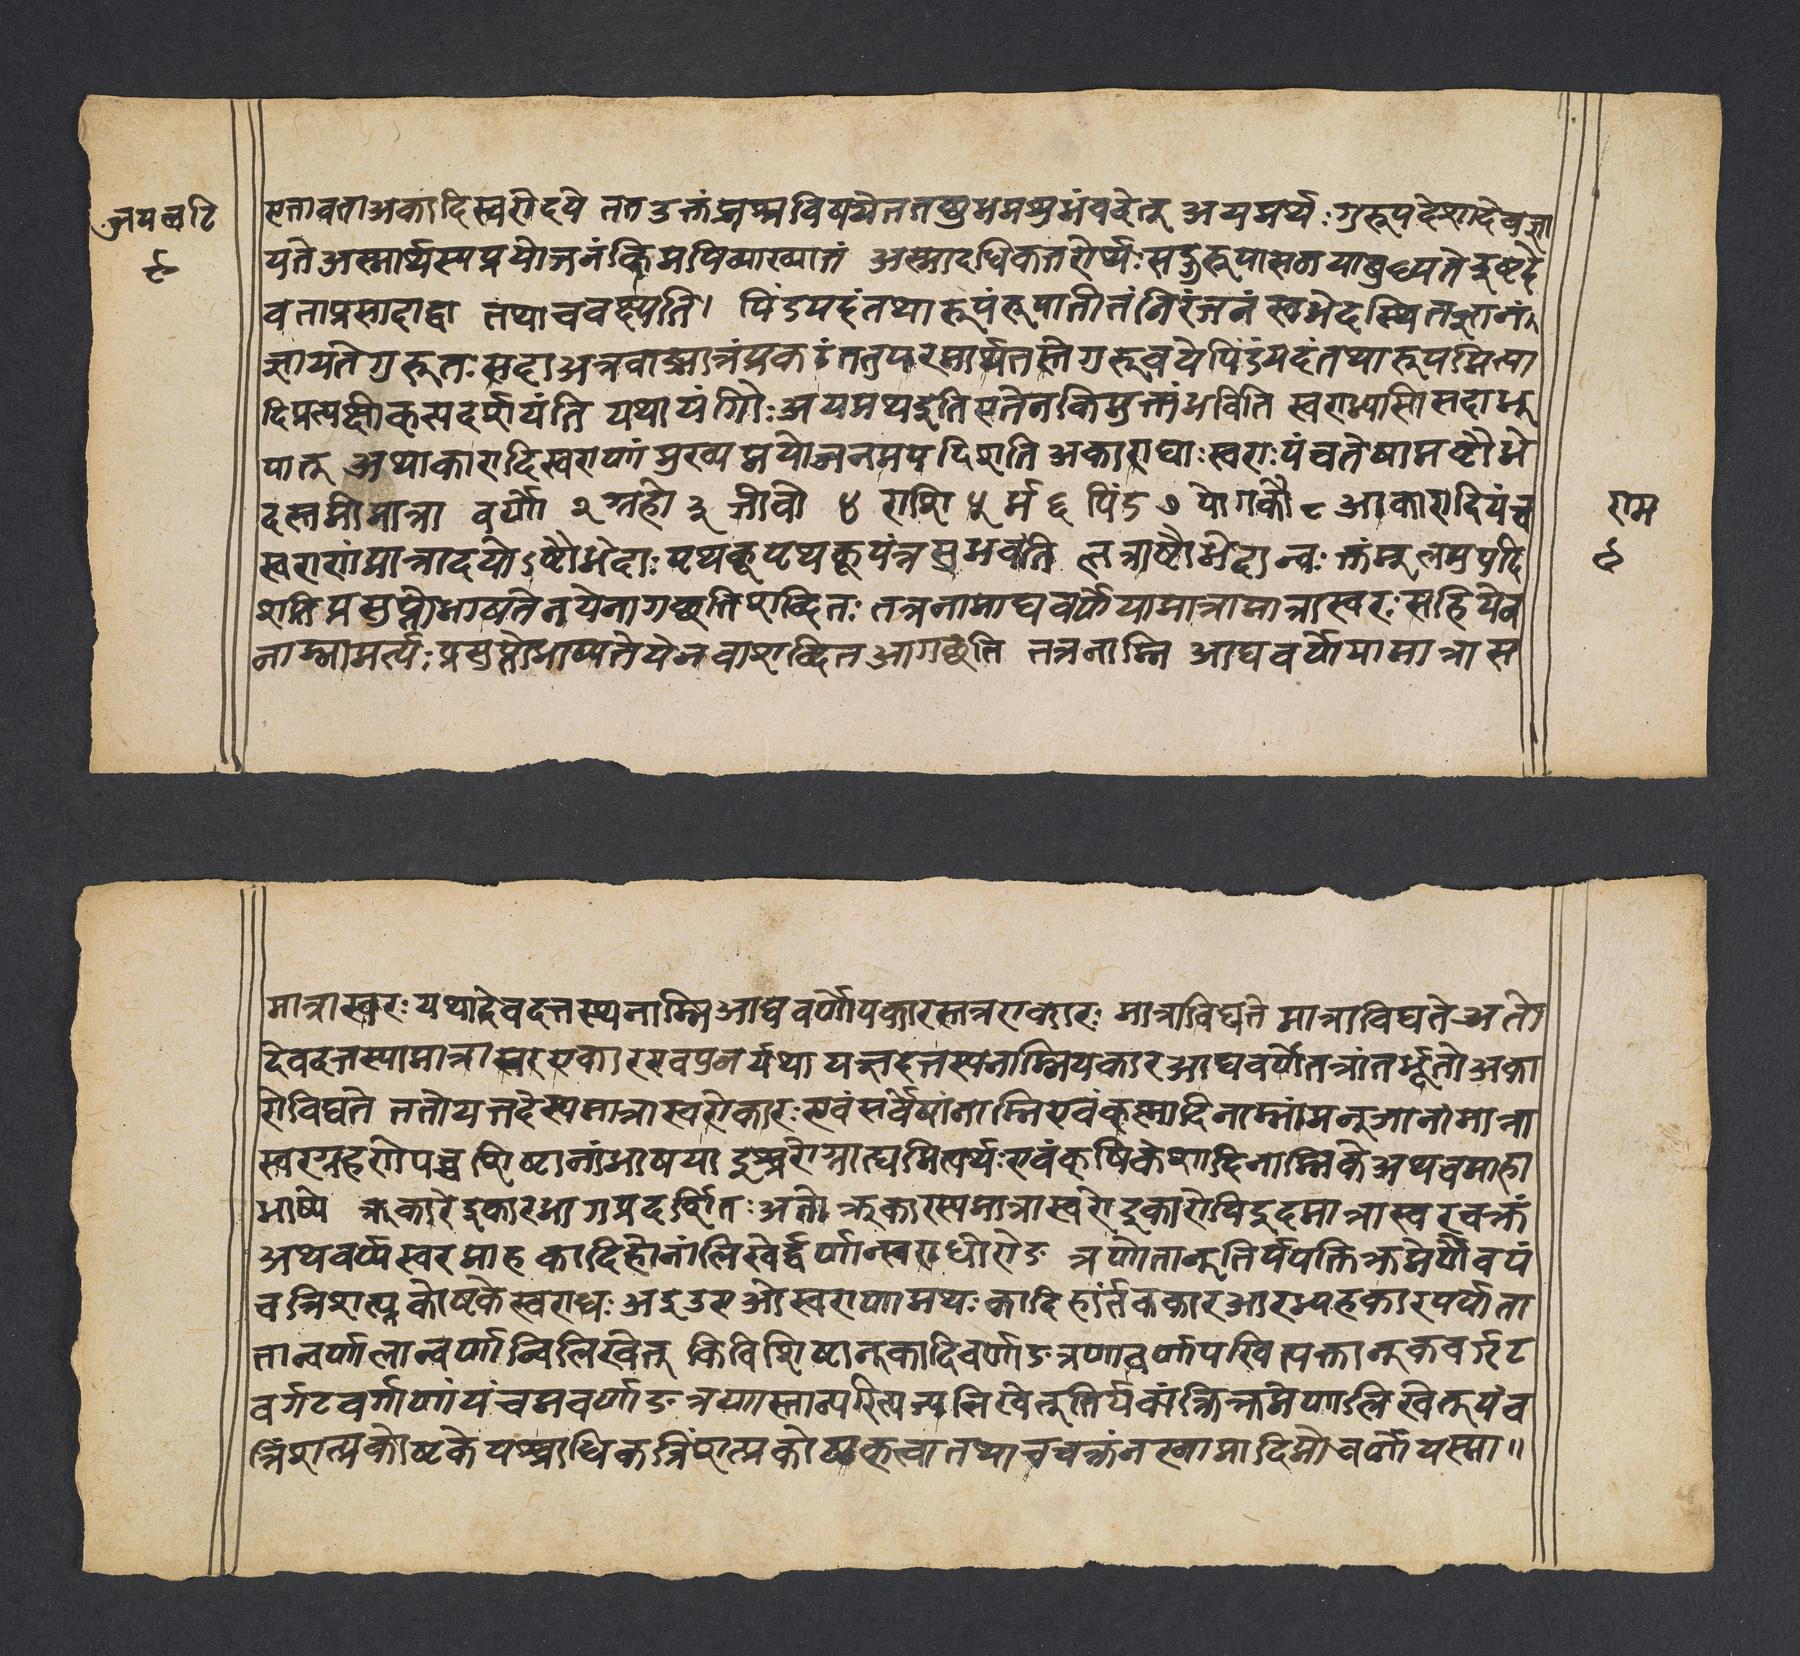 जयलटि
९
एतावता अकादिस्वरोदये तत उक्तं प्रश्नविषयेन तत शुभमशुभं वदेत् अयमर्थः गुरूपदेशादेव ज्ञा
यते अस्मार्थस्य प्रयोजनं किमपि व्याख्यातं अस्मादधिकतरोर्थ्यः सद्गुरूपासनयाबुध्यते इष्टदे
वताप्रसादाद्वा तथाच वक्ष्यति। पिंडपदं तथारूपं रूपातीतं निरंजनं स्वरभेदस्थितज्ञानं
ज्ञायते गुरुतः सदा अत्र प्रकटं तत्तु परमार्थतस्ते गुरुवये पिंडंपदं तथारूपमित्या
दि प्रत्यक्षीकत्य दर्शयंति यथायं गौः अयमथ इति एतेन किमुक्तं भविति स्वराभ्यासि सदाभु
यात् अथाकारादिस्वराणां मुख्यप्रयोजनमपदिशति अकाराद्याः स्वराः पंचतेषामष्टौभे
दस्तमीमात्रा वर्णो २ ग्रहो ३ जीवो ४ राशि ५ र्भ ६ पिंड ७ योगकौ ८ आकारादिपंच
स्वराणां मात्रादयोऽष्टौभेदाः पृथक्पृथक् प्रभवंति मुपदि
शति प्रसुप्तो भाषते न येनागछति शब्दितः तत्र नामाद्यवर्णे यामात्रामात्रास्वरः सहियेन
नाम्नामर्त्यः प्रसुप्तो भाष्यते येन वा शब्दित आगछति तत्र नाम्नि आद्यवर्णे यामात्रा स
राम
९
मात्रास्वरः यथादेवदत्तस्य नाम्नि आद्यवर्णो पकारस्तत्र एकारः मात्राविद्यते मात्राविद्यते अतो
देवदत्तस्यामात्रास्वर एकार एव पुनर्यथा यज्ञदत्तस्य नाम्नि यकार आद्यवर्णे तत्रांतर्भूतो अका
रो विद्यते ततो मात्रास्वरोकारः एवं सर्वेषां नाम्नि एवं नाम्नां मनुजानां मात्रा
स्वरग्रहणे भाषया मित्यर्थः एवं कृषिकेशादिनाम्नि के अथवमाहा
भाष्ये ऋकारे इकारभाग प्रदर्शितः अतो ऋकारस्य मात्रास्वरो इकारोपि इदमात्रास्वरचक्रं
अथवर्ण्णस्वरमाह कादिहांतांलिखेर्द्वर्णान्स्वराधोरोङ ञणोतान् तिर्यपक्ति क्रमेणैवपं
चत्रिंशत्प्रकोष्टके स्वराधः अ इ उ ए ओ स्वराणामथः कादिहांतं ककार आरभ्य हकारपर्यंता
तान्वर्णलान्वर्णान्विलिखेत् किंविशिष्टान् कादिवर्णा ङञणावर्णपरित्यक्तान् कवर्गट
वर्गटवर्गाणां पंचमवर्णा ङञणास्तान्परित्यज्य लिखेत् तिर्यकांक्तिक्रमेण लिखेत् पंच
त्रिंशत्प्रकोष्टके पञ्चाधिकत्रिंशत्प्रकोष्ठकत्वा तथा च चक्रंन स्वामादिमो वर्णो यस्मा॥